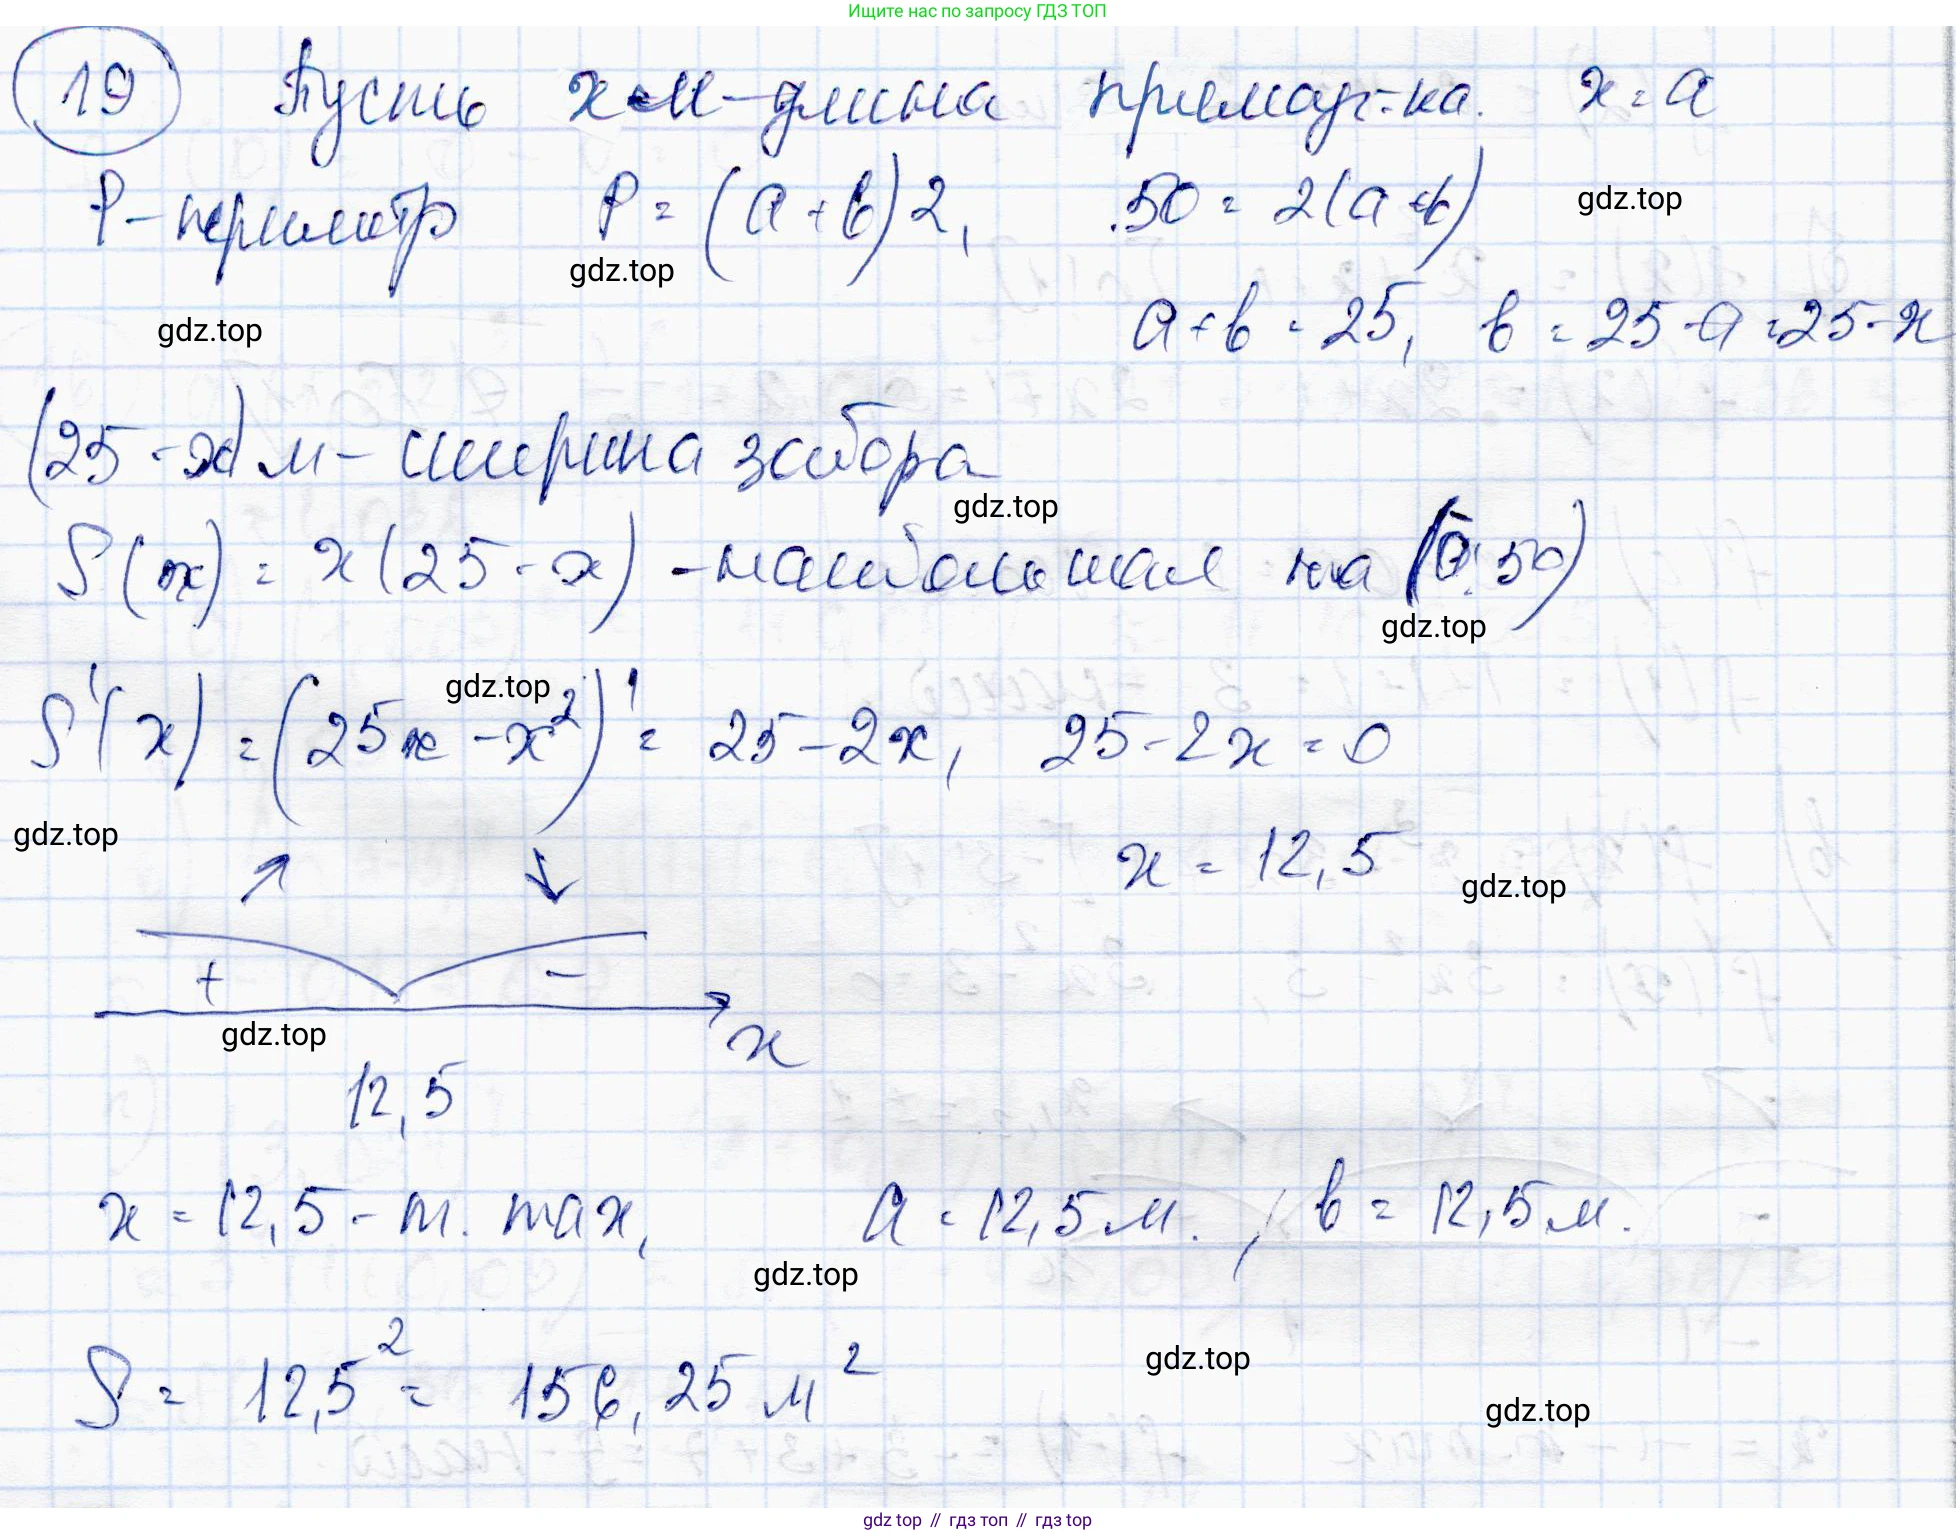 Ищите нас по запросу ГДЗ ТОП
19 Пусть x м - длина прямоуг-ка. x = a
P - периметр P = (a + b) 2, 50 = 2(a + b) gdz.top
gdz.top
gdz.top a + b = 25, b = 25 - a = 25 - x
(25 - x) м - ширина забора
gdz.top
S(x) = x(25 - x) - наибольшая на (0; 50)
gdz.top
gdz.top
S'(x) = (25x - x²)' = 25 - 2x, 25 - 2x = 0
gdz.top
x = 12,5 gdz.top
+ -
gdz.top x
12,5
x = 12,5 - т. max, a = 12,5 м. , b = 12,5 м.
gdz.top
S = 12,5² = 156,25 м²
gdz.top
gdz.top
gdz top // гдз топ // гдз top